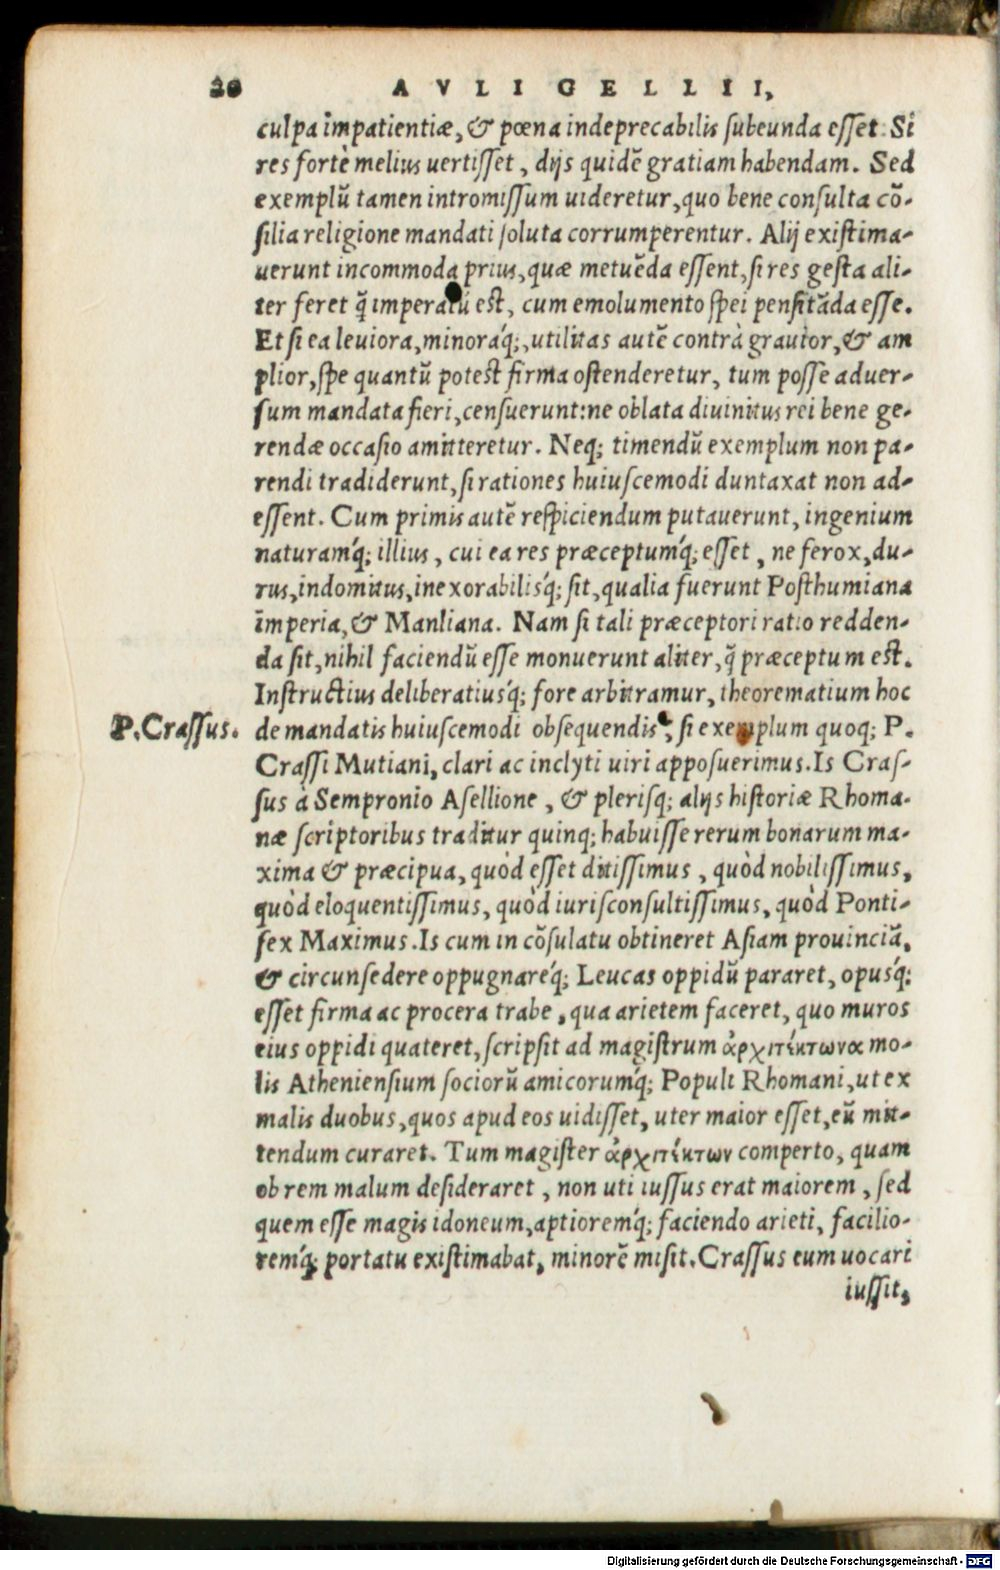 20 AVLI GELLII,
culpa impatientiæ, & pœna indeprecabilis subeunda esset. Si
res fortè melius uertisset, dijs quidẽ gratiam habendam. Sed
exemplũ tamen intromissum uideretur, quo bene consulta cõ-
silia religione mandati soluta corrumperentur. Alij existima-
uerunt incommoda prius, quæ metuẽda essent, si res gesta ali-
ter feret q̃ imperatũ est, cum emolumento spei pensitãda esse.
Et si ea leuiora, minoraq́;, utilitas autẽ contrà grauior, & am
plior, spe quantũ potest firma ostenderetur, tum posse aduer-
sum mandata fieri, censuerunt: ne oblata diuinitus rei bene ge-
rendæ occasio amitteretur. Neq; timendũ exemplum non pa-
rendi tradiderunt, si rationes huiuscemodi duntaxat non ad-
essent. Cum primis autẽ respiciendum putauerunt, ingenium
naturamq́; illius, cui ea res præceptumq́; esset, ne ferox, du-
rus, indomitus, inexorabilisq́; sit, qualia fuerunt Posthumiana
imperia, & Manliana. Nam si tali præceptori ratio redden-
da sit, nihil faciendũ esse monuerunt aliter, q̃ præceptum est.
Instructius deliberatiusq́; fore arbitramur, theorematium hoc
P. Crassus. de mandatis huiuscemodi obsequendis, si exemplum quoq; P.
Crassi Mutiani, clari ac inclyti uiri apposuerimus. Is Cras-
sus à Sempronio Asellione, & plerisq; alijs historiæ Rhoma-
næ scriptoribus traditur quinq; habuisse rerum bonarum ma-
xima & præcipua, quòd esset ditissimus, quòd nobilissimus,
quòd eloquentissimus, quòd iurisconsultissimus, quòd Ponti-
fex Maximus. Is cum in cõsulatu obtineret Asiam prouinciã,
& circunsedere oppugnareq́; Leucas oppidũ pararet, opusq́;
esset firma ac procera trabe, qua arietem faceret, quo muros
eius oppidi quateret, scripsit ad magistrum ἀρχιτέκτωνα mo-
lis Atheniensium sociorũ amicorumq́; Populi Rhomani, ut ex
malis duobus, quos apud eos uidisset, uter maior esset, eũ mit-
tendum curaret. Tum magister ἀρχιτέκτων comperto, quam
ob rem malum desideraret, non uti iussus erat maiorem, sed
quem esse magis idoneum, aptioremq́; faciendo arieti, facilio-
remq́; portatu existimabat, minorẽ misit. Crassus eum uocari
iussit,
Digitalisierung gefördert durch die Deutsche Forschungsgemeinschaft - DFG